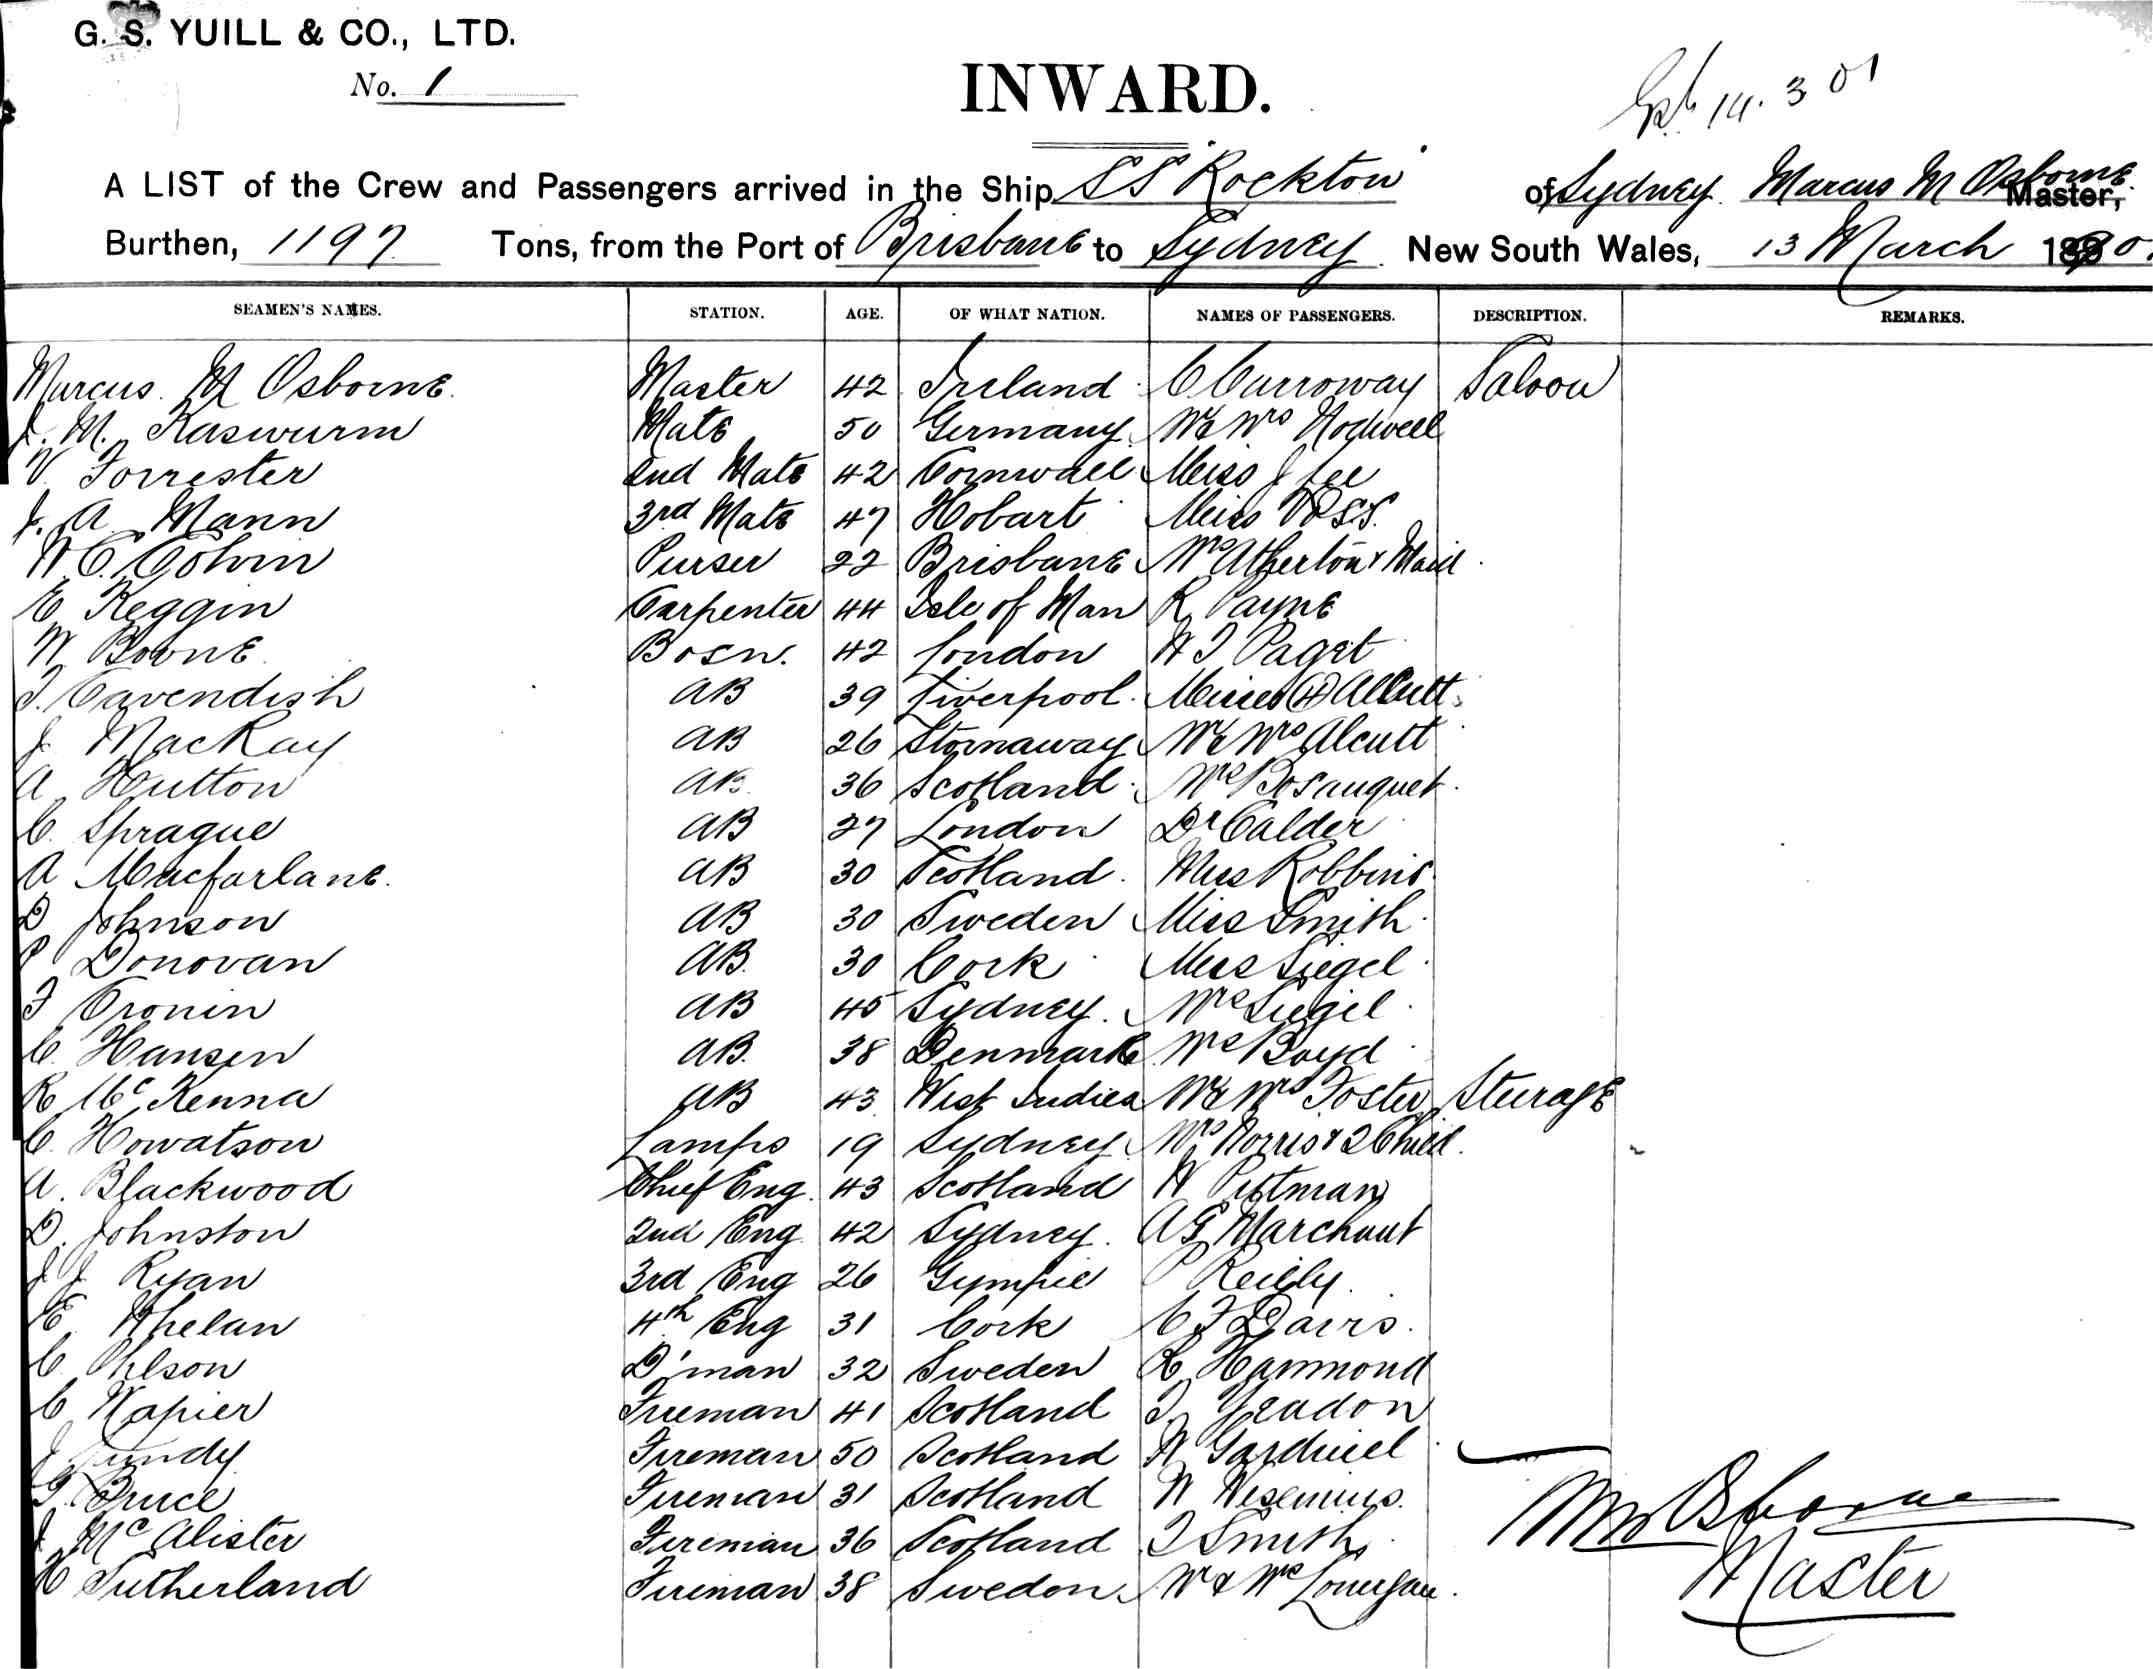 G. S. YUILL & CO., LTD.
No. 1
INWARD.
14. 3 01
A LIST of the Crew and Passengers arrived in the Ship SS Rockton of Sydney Marcus M Osborne Master,
Burthen, 1197 Tons, from the Port of Brisbane to Sydney New South Wales, 13 March
SEAMEN'S NAMES. STATION. AGE. OF WHAT NATION. NAMES OF PASSENGERS. DESCRIPTION. REMARKS.
Marcus M Osborne Master 42 Ireland C Carroway Saloon
J. M. Kaswurm Mate 50 Germany Mr & Mrs Rodwell
V Forrester 2nd Mate 42 Cornwall Miss J Lee
J. A Mann 3rd Mate 47 Hobart Miss
W. C. Colvin Purser 22 Brisbane Mrs Atherton & Maid
E Keggin Carpenter 44 Isle of Man R Payne
W Boone Bosn. 42 London H T Paget
T. Cavendish AB 39 Liverpool Misses (4) Allcutt
J MacKay AB 26 Stornaway Mr & Mrs Alcutt
A Hutton AB 36 Scotland Mrs Bosanquet
C. Sprague AB 27 London Dr Calder
A Macfarlane AB 30 Scotland Miss Robbins
D Johnson AB 30 Sweden Miss Smith
P Donovan AB 30 Cork Miss Siegel
F Cronin AB 45 Sydney Mrs Siegel
C. Hansen AB 38 Denmark Mrs Boyd
R McKenna AB 43 West Indies Mr & Mrs Foster Sturage
C. Howatson Lamps 19 Sydney Mrs Norris & 2 Child
A. Blackwood Chief Eng 43 Scotland W Pittman
D. Johnston 2nd Eng 42 Sydney A G Marchant
J J Ryan 3rd Eng 26 Gympie P Reilly
E Whelan 4th Eng 31 Cork C F Davis
C. Ohlson D'man 32 Sweden R Hammond
C Napier Fireman 41 Scotland T Yeadon
J Cundy Fireman 50 Scotland W
G. Bruce Fireman 31 Scotland W
J McAlister Fireman 36 Scotland T Smith
C Sutherland Fireman 38 Sweden Mr & Mrs Lonergan
MM Osborne
Master